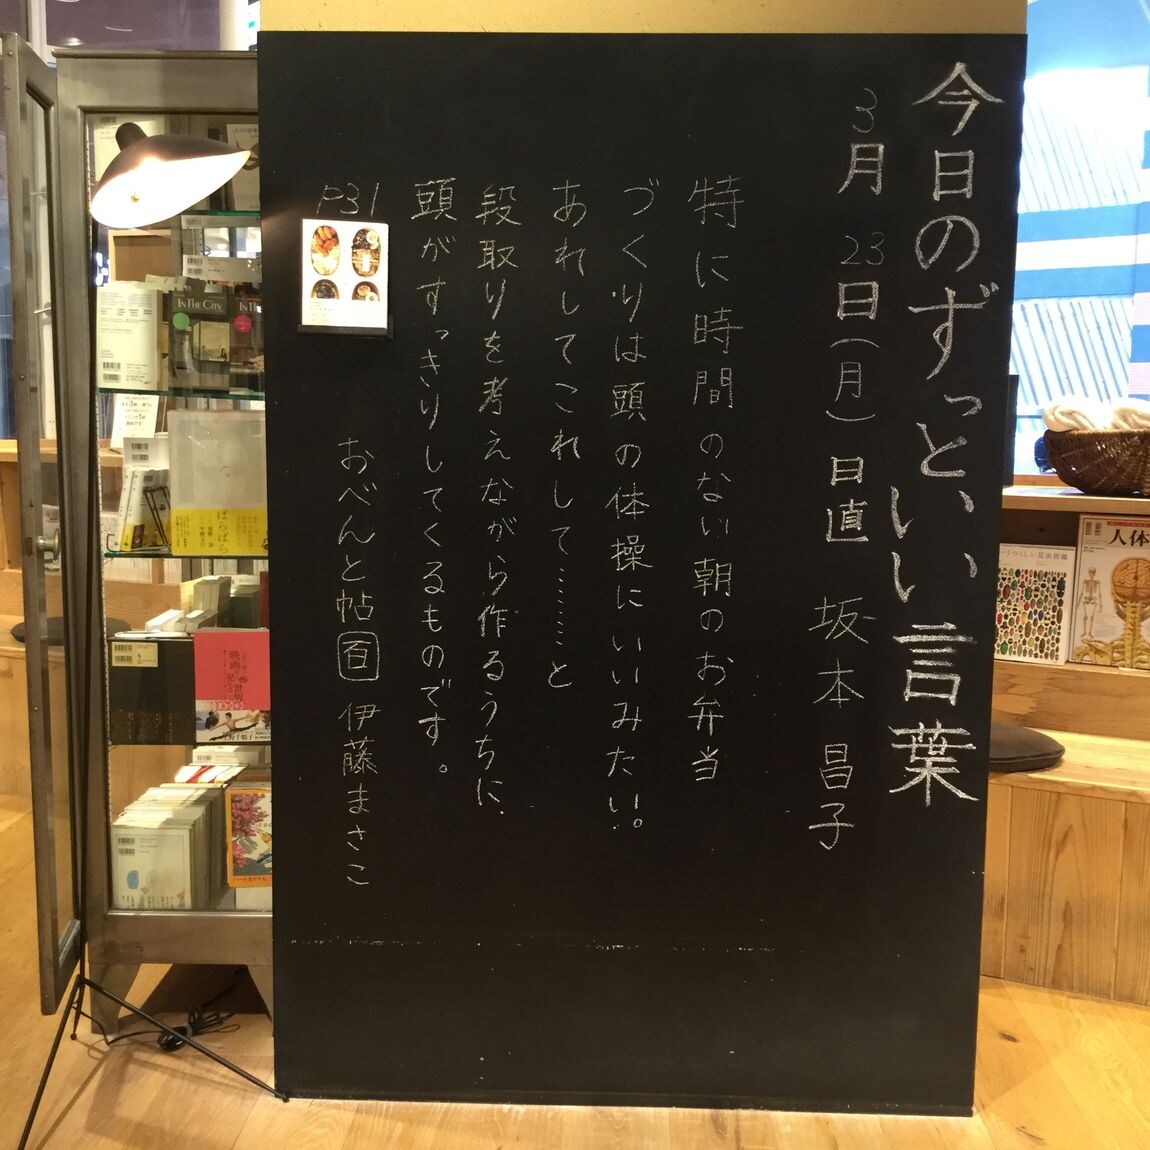 今日のずっと、いい言葉
3月 23日(月) 日直 坂本 昌子
特に時間のない朝のお弁当
づくりは頭の体操にいいみたい。
あれしてこれして……と
段取りを考えながら作るうちに、
頭がすっきりしてくるものです。
P31
おべんと帖 百 伊藤まさこ
IN THE CITY
ぱらぱら
映画
世界
うつくしい昆虫図鑑
人体